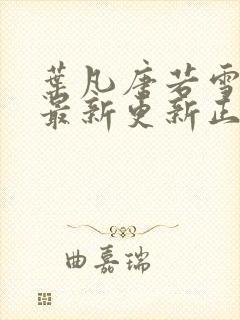 葉凡唐若雪
最新更新正
曲嘉瑞